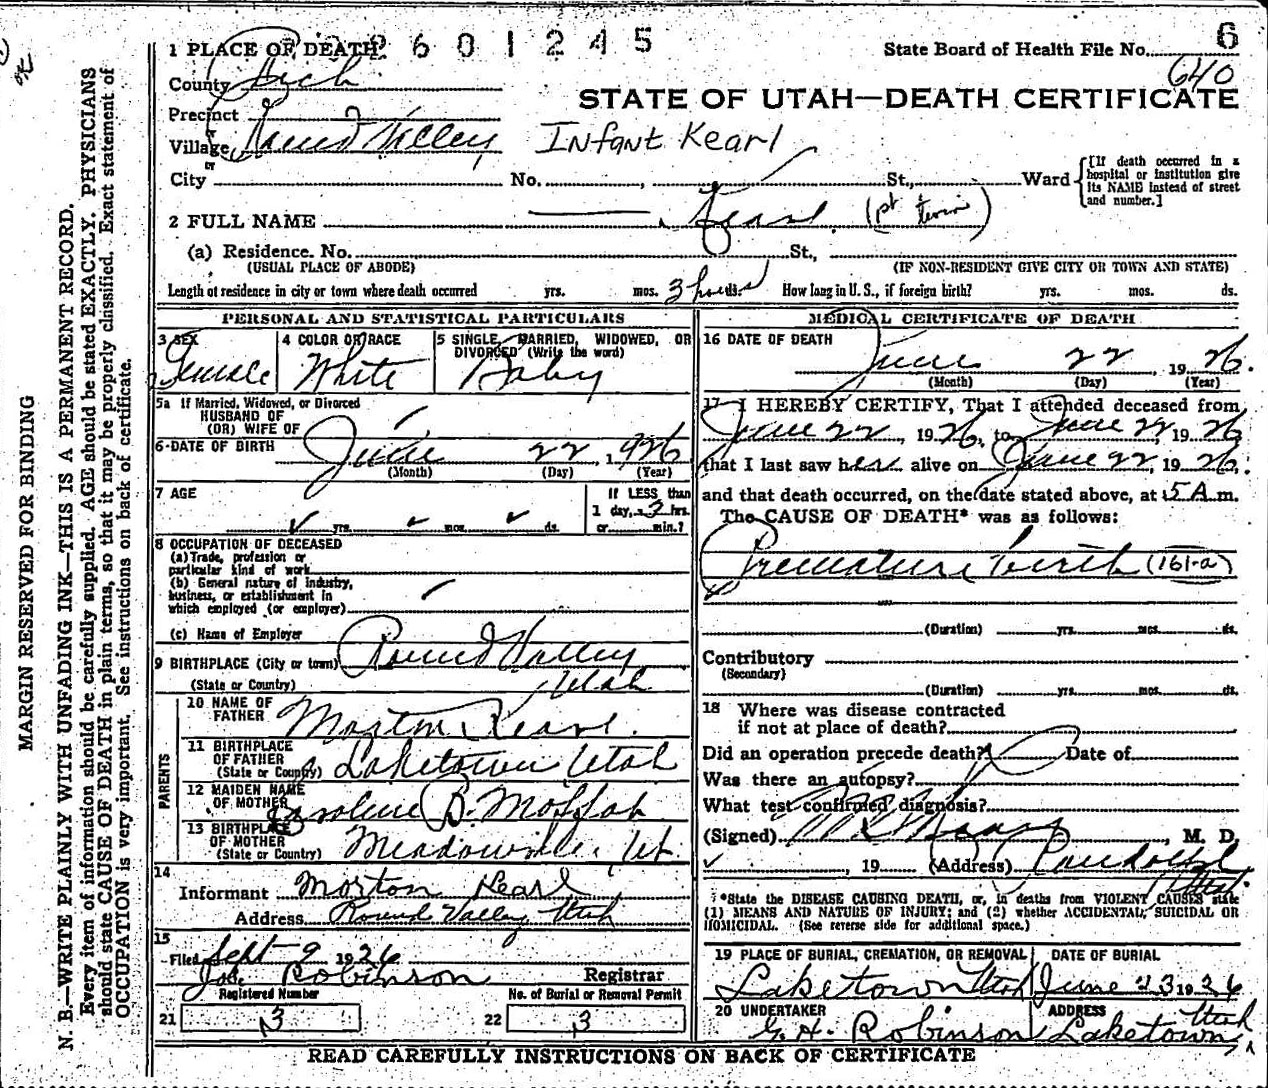 2601245
State Board of Health File No. 6
640
STATE OF UTAH—DEATH CERTIFICATE
1 PLACE OF DEATH
County Rich
Precinct
or
Village Round Valley Infant Kearl
or
City No. , St., Ward
[If death occurred in a hospital or institution give its NAME instead of street and number.]
2 FULL NAME Kearl (1st twin)
(a) Residence. No. St.,
(USUAL PLACE OF ABODE) (IF NON-RESIDENT GIVE CITY OR TOWN AND STATE)
Length of residence in city or town where death occurred yrs. mos. 3 hours ds. How long in U. S., if foreign birth? yrs. mos. ds.
PERSONAL AND STATISTICAL PARTICULARS
3 SEX Female
4 COLOR OR RACE White
5 SINGLE, MARRIED, WIDOWED, OR DIVORCED (Write the word) Baby
5a If Married, Widowed, or Divorced
HUSBAND OF
(OR) WIFE OF
6 DATE OF BIRTH June 22, 1926
(Month) (Day) (Year)
7 AGE yrs. mos. ds.
If LESS than
1 day, 3 hrs.
or min.?
8 OCCUPATION OF DECEASED
(a) Trade, profession or
particular kind of work
(b) General nature of industry,
business, or establishment in
which employed (or employer)
(c) Name of Employer
9 BIRTHPLACE (City or town) Round Valley
(State or Country) Utah
PARENTS
10 NAME OF FATHER Morton Kearl
11 BIRTHPLACE OF FATHER (State or Country) Laketown Utah
12 MAIDEN NAME OF MOTHER B. Moffat
13 BIRTHPLACE OF MOTHER (State or Country) Meadowville, Ut
14
Informant Morton Kearl
Address Round Valley Utah
15
Filed Sept 9 1926
Jos. Robinson Registrar
Registered Number No. of Burial or Removal Permit
21 3 22 3
MEDICAL CERTIFICATE OF DEATH
16 DATE OF DEATH
June 22, 1926.
(Month) (Day) (Year)
17 I HEREBY CERTIFY, That I attended deceased from
June 22, 1926, to June 22, 1926
that I last saw her alive on June 22, 1926.
and that death occurred, on the date stated above, at 5 A m.
The CAUSE OF DEATH* was as follows:
Premature birth (161-a)
(Duration) yrs. mos. ds.
Contributory
(Secondary)
(Duration) yrs. mos. ds.
18 Where was disease contracted
if not at place of death?
Did an operation precede death? Date of
Was there an autopsy?
What test confirmed diagnosis?
(Signed) , M. D.
, 19 (Address) Randolph
Utah.
*State the DISEASE CAUSING DEATH, or, in deaths from VIOLENT CAUSES state
(1) MEANS AND NATURE OF INJURY; and (2) whether ACCIDENTAL, SUICIDAL OR
HOMICIDAL. (See reverse side for additional space.)
19 PLACE OF BURIAL, CREMATION, OR REMOVAL DATE OF BURIAL
Laketown Utah June 23 1926
20 UNDERTAKER ADDRESS
G. H. Robinson Laketown Utah
READ CAREFULLY INSTRUCTIONS ON BACK OF CERTIFICATE
MARGIN RESERVED FOR BINDING
N. B.—WRITE PLAINLY WITH UNFADING INK—THIS IS A PERMANENT RECORD.
Every item of information should be carefully supplied. AGE should be stated EXACTLY. PHYSICIANS
should state CAUSE OF DEATH in plain terms, so that it may be properly classified. Exact statement of
OCCUPATION is very important. See instructions on back of certificate.